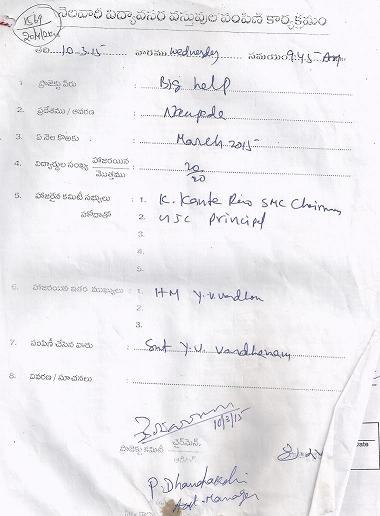 నెలవారీ విద్యావసర వస్తువుల పంపిణీ కార్యక్రమం
తేది 10-3-15 వారము Wednesday సమయం 9:45 Am
1. ప్రాజెక్టు పేరు : Big help
2. ప్రదేశము / ఆవరణ : Naupada
3. ఏ నెల కొరకు : March 2015
4. విద్యార్థుల సంఖ్య హాజరయిన / మొత్తము : 20/20
5. హాజరైన కమిటీ సభ్యులు : 1. K. Kanta Rao SMC Chairman
హోదాతో 2. principal
3.
4.
5.
6. హాజరయిన ఇతర ముఖ్యులు : 1. HM Y.V.
2.
3.
7. పంపిణీ చేసిన వారు : Smt Y.V. Vardhanam
8. వివరణ / సూచనలు :
10/3/15
ప్రాజెక్టు కమిటీ ఛైర్మెన్
P. Dhanalakshmi
Asst. Manager